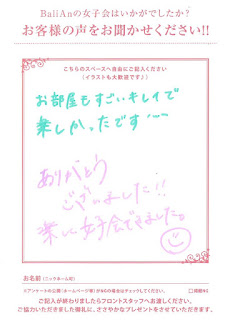 BaliAnの女子会はいかがでしたか?
お客様の声をお聞かせください!!
こちらのスペースへ自由にご記入ください
(イラストも大歓迎です♪)
お部屋もすごいキレイで
楽しかったです
ありがとう
ございました!!
楽しい女子会できました。
お名前(ニックネーム可)
※アンケートの公開(ホームページ等)がNGの場合はチェックしてください。 □掲載NG
ご記入が終わりましたらフロントスタッフへお渡しください。
ご協力いただきました御礼に、ささやかなプレゼントをさせていただきます。